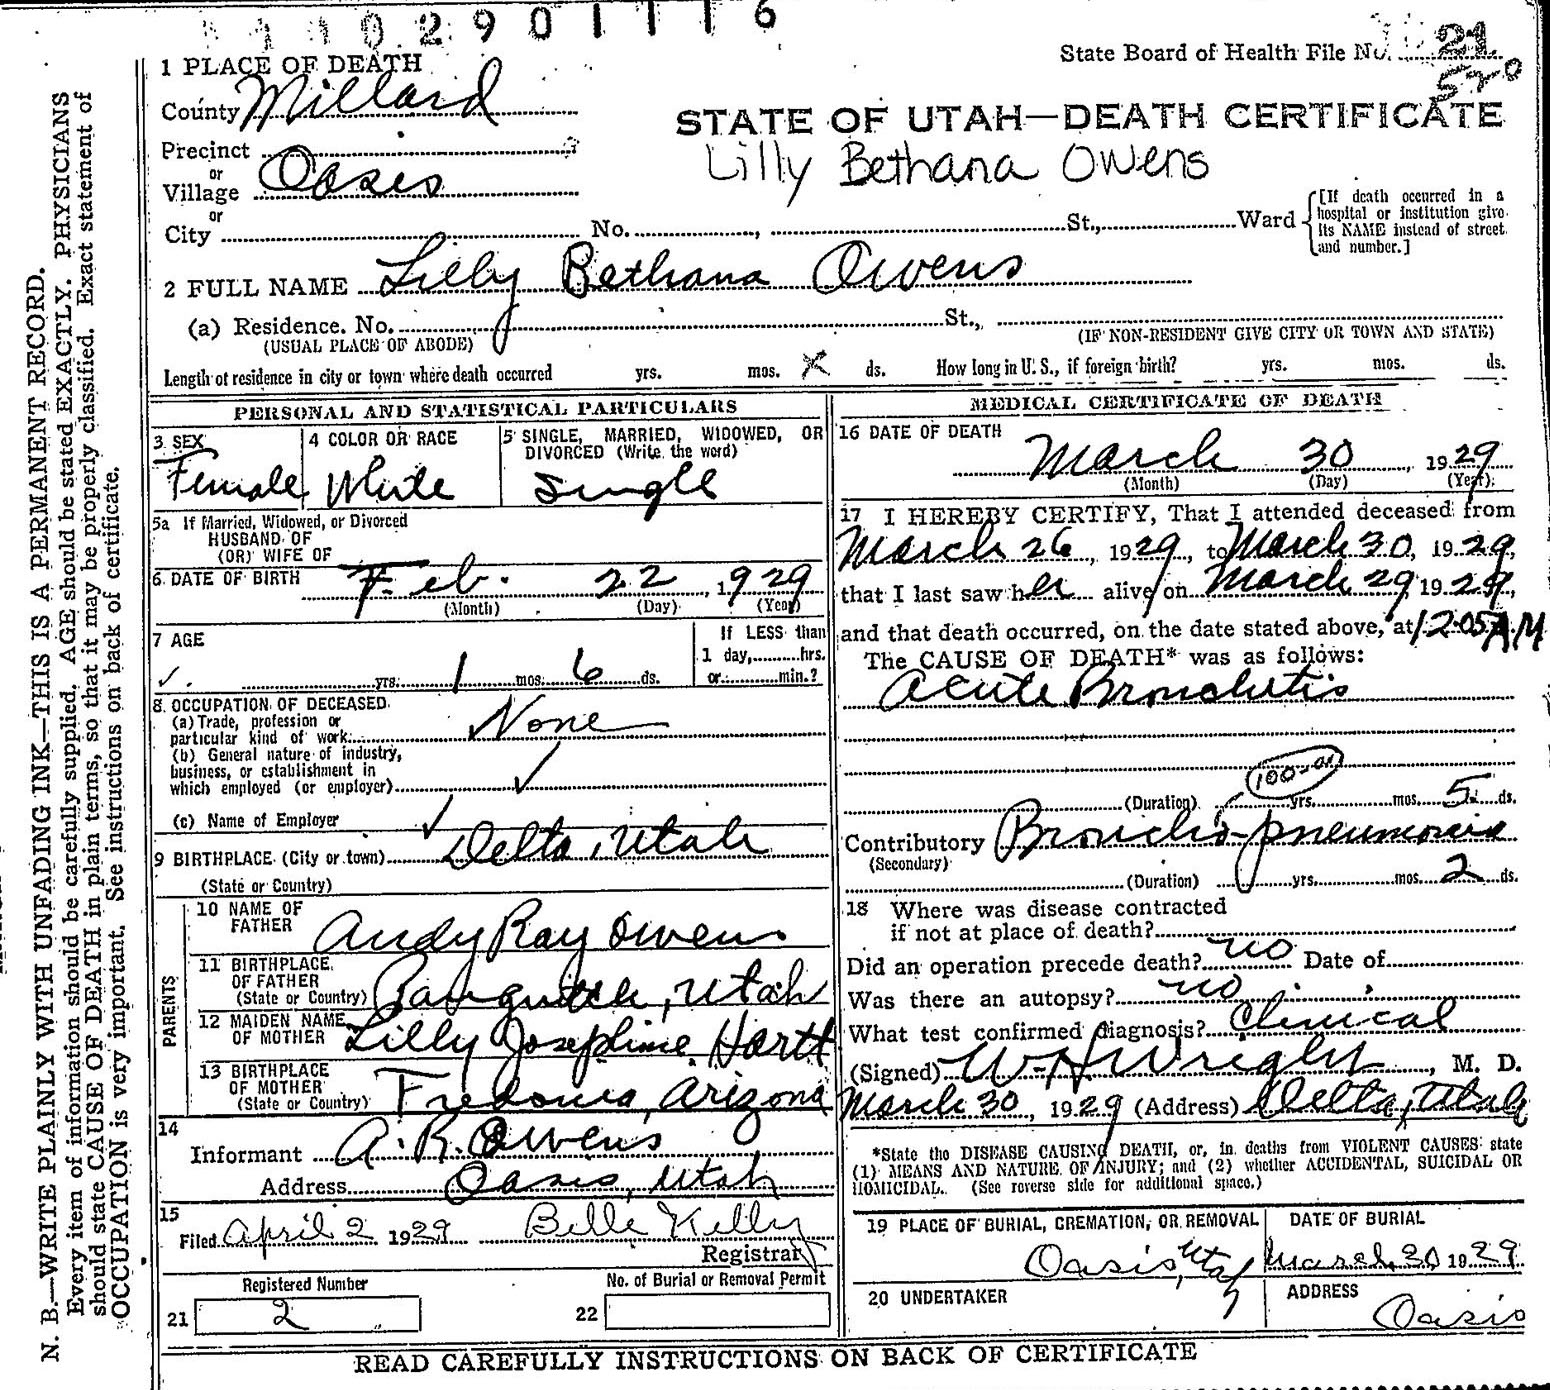 2 9 0 1 1 1 6
State Board of Health File No. 21
520
1 PLACE OF DEATH
County Millard
STATE OF UTAH—DEATH CERTIFICATE
Precinct
or
Village Oasis
Lilly Bethana Owens
or
City No. , St., Ward
[If death occurred in a hospital or institution give its NAME instead of street and number.]
2 FULL NAME Lilly Bethana Owens
(a) Residence. No. St.,
(USUAL PLACE OF ABODE) (IF NON-RESIDENT GIVE CITY OR TOWN AND STATE)
Length of residence in city or town where death occurred yrs. mos. X ds. How long in U. S., if foreign birth? yrs. mos. ds.
PERSONAL AND STATISTICAL PARTICULARS
3 SEX
Female
4 COLOR OR RACE
White
5 SINGLE, MARRIED, WIDOWED, OR
DIVORCED (Write the word)
Single
5a If Married, Widowed, or Divorced
HUSBAND OF
(OR) WIFE OF
6 DATE OF BIRTH Feb. 22, 1929
(Month) (Day) (Year)
7 AGE
yrs. 1 mos. 6 ds.
If LESS than
1 day, hrs.
or min.?
8 OCCUPATION OF DECEASED
(a) Trade, profession or
particular kind of work None
(b) General nature of industry,
business, or establishment in
which employed (or employer) ✓
(c) Name of Employer ✓
9 BIRTHPLACE (City or town) Delta, Utah
(State or Country)
PARENTS
10 NAME OF
FATHER Andy Ray Owens
11 BIRTHPLACE
OF FATHER
(State or Country) Panguitch, Utah
12 MAIDEN NAME
OF MOTHER Lilly Josephine Hortt
13 BIRTHPLACE
OF MOTHER
(State or Country) Fredonia, Arizona
14
Informant A. R. Owens
Address Oasis, Utah
15
Filed April 2 1929 Belle Kelly
Registrar
Registered Number
21 2
No. of Burial or Removal Permit
22
MEDICAL CERTIFICATE OF DEATH
16 DATE OF DEATH
March 30, 1929
(Month) (Day) (Year)
17 I HEREBY CERTIFY, That I attended deceased from
March 26, 1929, to March 30, 1929,
that I last saw her alive on March 29, 1929,
and that death occurred, on the date stated above, at 12:05 AM
The CAUSE OF DEATH* was as follows:
Acute Bronchitis
(Duration) yrs. mos. 5 ds.
Contributory Broncho-pneumonia
(Secondary)
(Duration) yrs. mos. 2 ds.
18 Where was disease contracted
if not at place of death?
Did an operation precede death? no Date of
Was there an autopsy? no
What test confirmed diagnosis? Clinical
(Signed) W. H. Wright, M. D.
March 30, 1929 (Address) Delta, Utah
*State the DISEASE CAUSING DEATH, or, in deaths from VIOLENT CAUSES state
(1) MEANS AND NATURE OF INJURY; and (2) whether ACCIDENTAL, SUICIDAL OR
HOMICIDAL. (See reverse side for additional space.)
19 PLACE OF BURIAL, CREMATION, OR REMOVAL
Oasis, Utah
DATE OF BURIAL
March 30 1929
20 UNDERTAKER
ADDRESS
Oasis
READ CAREFULLY INSTRUCTIONS ON BACK OF CERTIFICATE
N. B.—WRITE PLAINLY WITH UNFADING INK—THIS IS A PERMANENT RECORD.
Every item of information should be carefully supplied. AGE should be stated EXACTLY. PHYSICIANS
should state CAUSE OF DEATH in plain terms, so that it may be properly classified. Exact statement of
OCCUPATION is very important. See instructions on back of certificate.